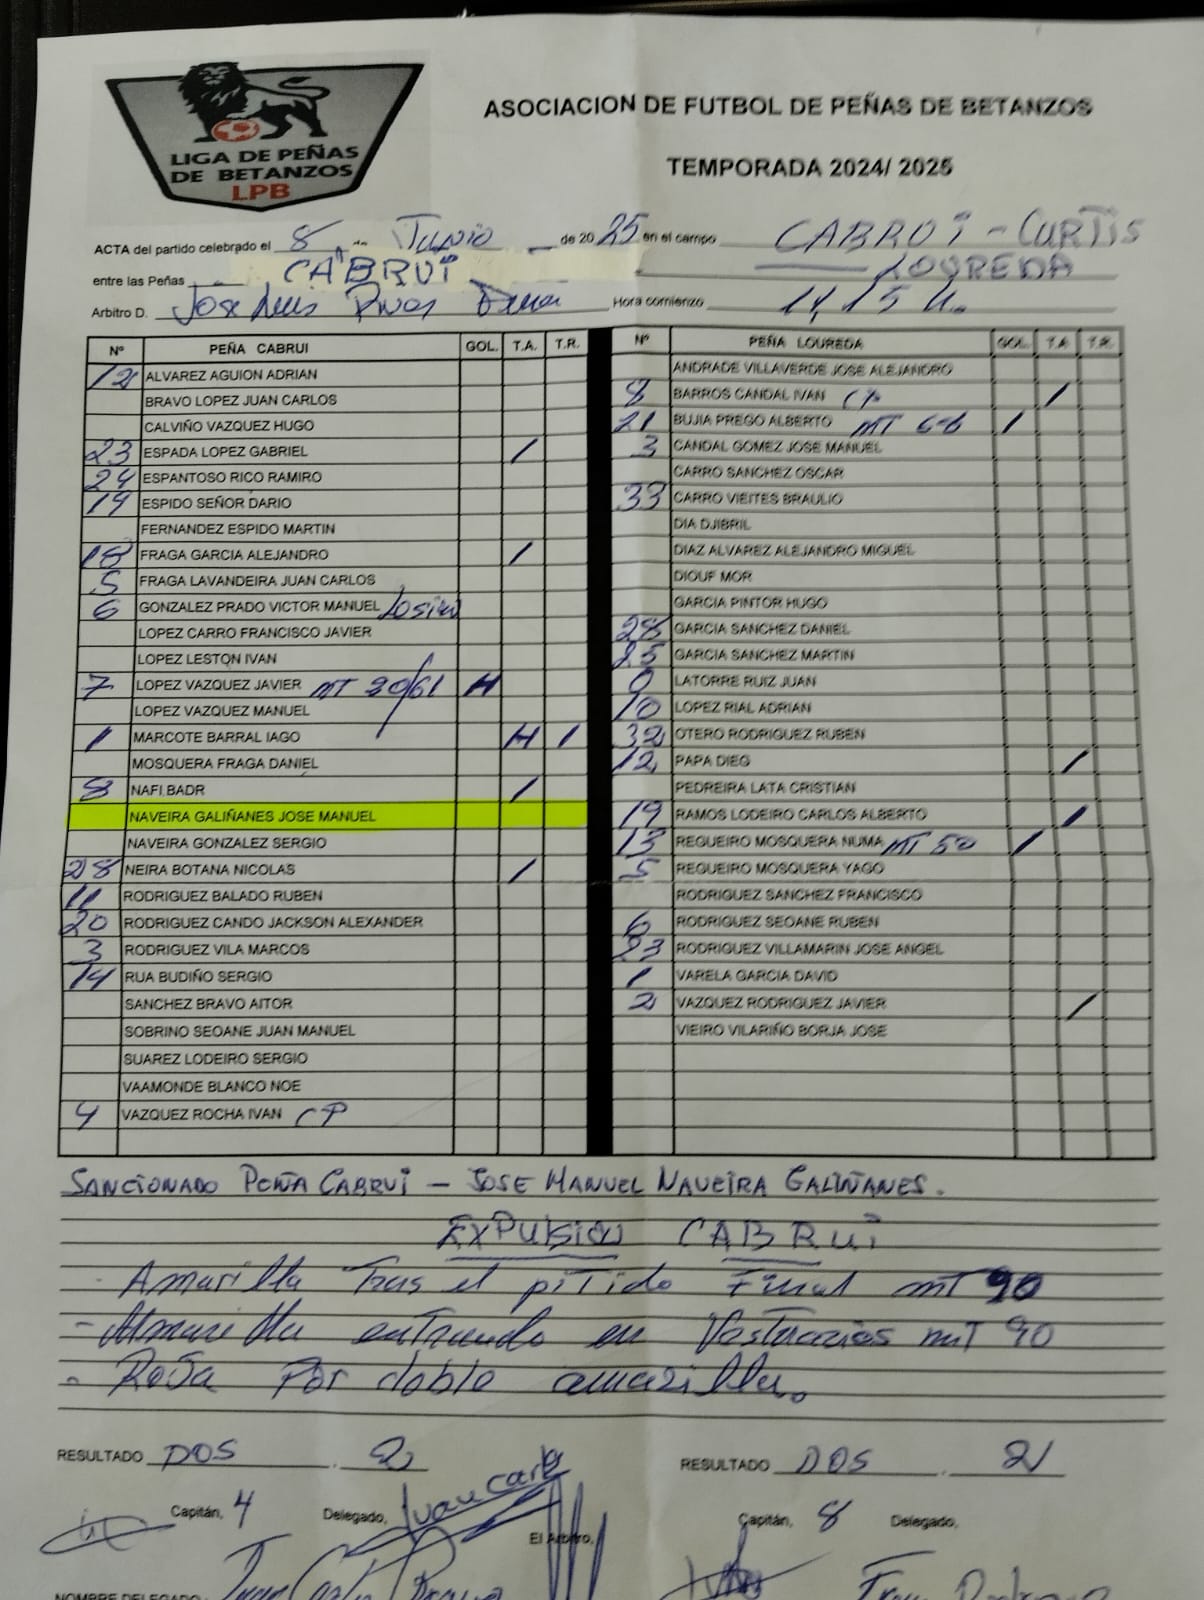 LIGA DE PEÑAS
DE BETANZOS
LPB
ASOCIACION DE FUTBOL DE PEÑAS DE BETANZOS
TEMPORADA 2024/ 2025
ACTA del partido celebrado el 8 de Junio de 2025 en el campo CABRUI - CURTIS
entre las Peñas CABRUI LOUREDA
Arbitro D. Jose Luis Hora comienzo 11,15 H.
Nº PEÑA CABRUI GOL. T.A. T.R. Nº PEÑA LOUREDA GOL. T.A. T.R.
12 ALVAREZ AGUION ADRIAN ANDRADE VILLAVERDE JOSE ALEJANDRO
BRAVO LOPEZ JUAN CARLOS 8 BARROS CANDAL IVAN CP /
CALVIÑO VAZQUEZ HUGO 21 BUJIA PREGO ALBERTO MT 66 /
23 ESPADA LOPEZ GABRIEL / 3 CANDAL GOMEZ JOSE MANUEL
24 ESPANTOSO RICO RAMIRO CARRO SANCHEZ OSCAR
19 ESPIDO SEÑOR DARIO 33 CARRO VIEITES BRAULIO
FERNANDEZ ESPIDO MARTIN DIA DJIBRIL
18 FRAGA GARCIA ALEJANDRO / DIAZ ALVAREZ ALEJANDRO MIGUEL
5 FRAGA LAVANDEIRA JUAN CARLOS DIOUF MOR
6 GONZALEZ PRADO VICTOR MANUEL GARCIA PINTOR HUGO
LOPEZ CARRO FRANCISCO JAVIER 28 GARCIA SANCHEZ DANIEL
LOPEZ LESTON IVAN 25 GARCIA SANCHEZ MARTIN
7 LOPEZ VAZQUEZ JAVIER MT 30/61 H 9 LATORRE RUIZ JUAN
LOPEZ VAZQUEZ MANUEL 10 LOPEZ RIAL ADRIAN
1 MARCOTE BARRAL IAGO H 1 32 OTERO RODRIGUEZ RUBEN
MOSQUERA FRAGA DANIEL 12 PAPA DIEG /
8 NAFI BADR / PEDREIRA LATA CRISTIAN
NAVEIRA GALIÑANES JOSE MANUEL 19 RAMOS LODEIRO CARLOS ALBERTO /
NAVEIRA GONZALEZ SERGIO 13 REGUEIRO MOSQUERA NUMA MT 50 /
28 NEIRA BOTANA NICOLAS / 5 REGUEIRO MOSQUERA YAGO
11 RODRIGUEZ BALADO RUBEN RODRIGUEZ SANCHEZ FRANCISCO
20 RODRIGUEZ CANDO JACKSON ALEXANDER 6 RODRIGUEZ SEOANE RUBEN
3 RODRIGUEZ VILA MARCOS 23 RODRIGUEZ VILLAMARIN JOSE ANGEL
14 RUA BUDIÑO SERGIO 1 VARELA GARCIA DAVID
SANCHEZ BRAVO AITOR 2 VAZQUEZ RODRIGUEZ JAVIER /
SOBRINO SEOANE JUAN MANUEL VIEIRO VILARIÑO BORJA JOSE
SUAREZ LODEIRO SERGIO
VAAMONDE BLANCO NOE
4 VAZQUEZ ROCHA IVAN CP
SANCIONADO PEÑA CABRUI - JOSE MANUEL NAVEIRA GALIÑANES.
EXPULSION CABRUI
- Amarilla Tras el pitido Final MT 90
- Amarilla entrando en Vestuarios MT 90
- Roja Por doble amarilla.
RESULTADO DOS 2 RESULTADO DOS 2
Capitán, 4 Delegado, Juan Carlos El Arbitro, Capitán, 8 Delegado,
NOMBRE DELEGADO: Juan Carlos Bravo